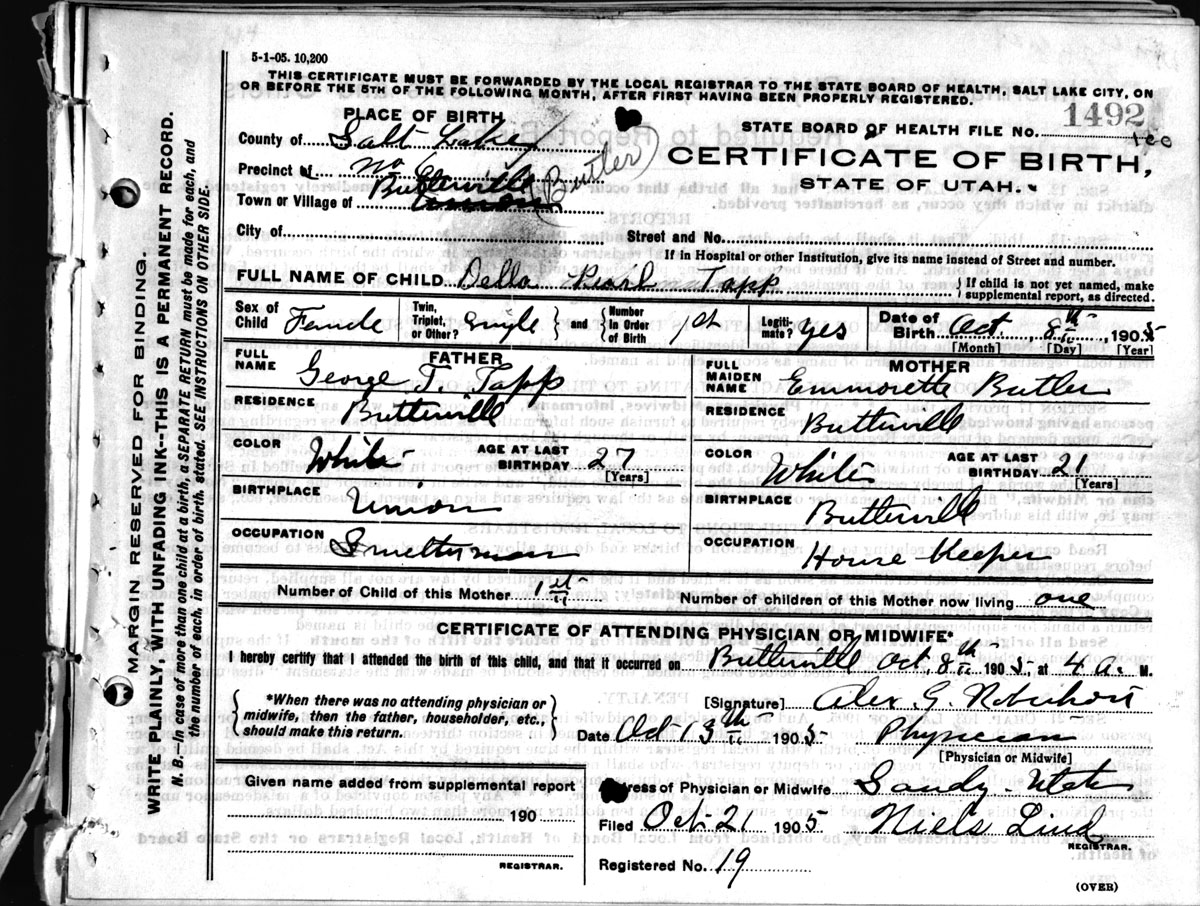 5-1-05. 10,200
THIS CERTIFICATE MUST BE FORWARDED BY THE LOCAL REGISTRAR TO THE STATE BOARD OF HEALTH, SALT LAKE CITY, ON
OR BEFORE THE 5TH OF THE FOLLOWING MONTH, AFTER FIRST HAVING BEEN PROPERLY REGISTERED.
PLACE OF BIRTH
STATE BOARD OF HEALTH FILE NO. 1492
County of Salt Lake
CERTIFICATE OF BIRTH,
STATE OF UTAH.
Precinct of No 6
Town or Village of Butlerville Union (Butler)
City of Street and No.
If in Hospital or other Institution, give its name instead of Street and number.
FULL NAME OF CHILD Della Pearl Tapp { If child is not yet named, make supplemental report, as directed.
Sex of Child Female Twin, Triplet, or Other? Single } and { Number in Order of Birth 1st Legitimate? Yes Date of Birth Oct 8th, 1905
[Month] [Day] [Year]
FATHER
FULL NAME George T. Tapp
RESIDENCE Butlerville
COLOR White AGE AT LAST BIRTHDAY 27
[Years]
BIRTHPLACE Union
OCCUPATION Smelterman
MOTHER
FULL MAIDEN NAME Emmorette Butler
RESIDENCE Butlerville
COLOR White AGE AT LAST BIRTHDAY 21
[Years]
BIRTHPLACE Butlerville
OCCUPATION House Keeper
Number of Child of this Mother 1st Number of children of this Mother now living one
CERTIFICATE OF ATTENDING PHYSICIAN OR MIDWIFE*
I hereby certify that I attended the birth of this child, and that it occurred on Butlerville Oct 8th 1905, at 4 a. M.
{ *When there was no attending physician or midwife, then the father, householder, etc., should make this return. }
[Signature] Alex. G. Robertson
Date Oct 13th 1905 Physician
[Physician or Midwife]
Given name added from supplemental report
190
REGISTRAR.
Address of Physician or Midwife Sandy Utah
Filed Oct 21 1905 Niels Lind
REGISTRAR.
Registered No. 19
(OVER)
MARGIN RESERVED FOR BINDING.
WRITE PLAINLY, WITH UNFADING INK--THIS IS A PERMANENT RECORD.
N.B.—In case of more than one child at a birth, a SEPARATE RETURN must be made for each, and
the number of each, in order of birth, stated. SEE INSTRUCTIONS ON OTHER SIDE.